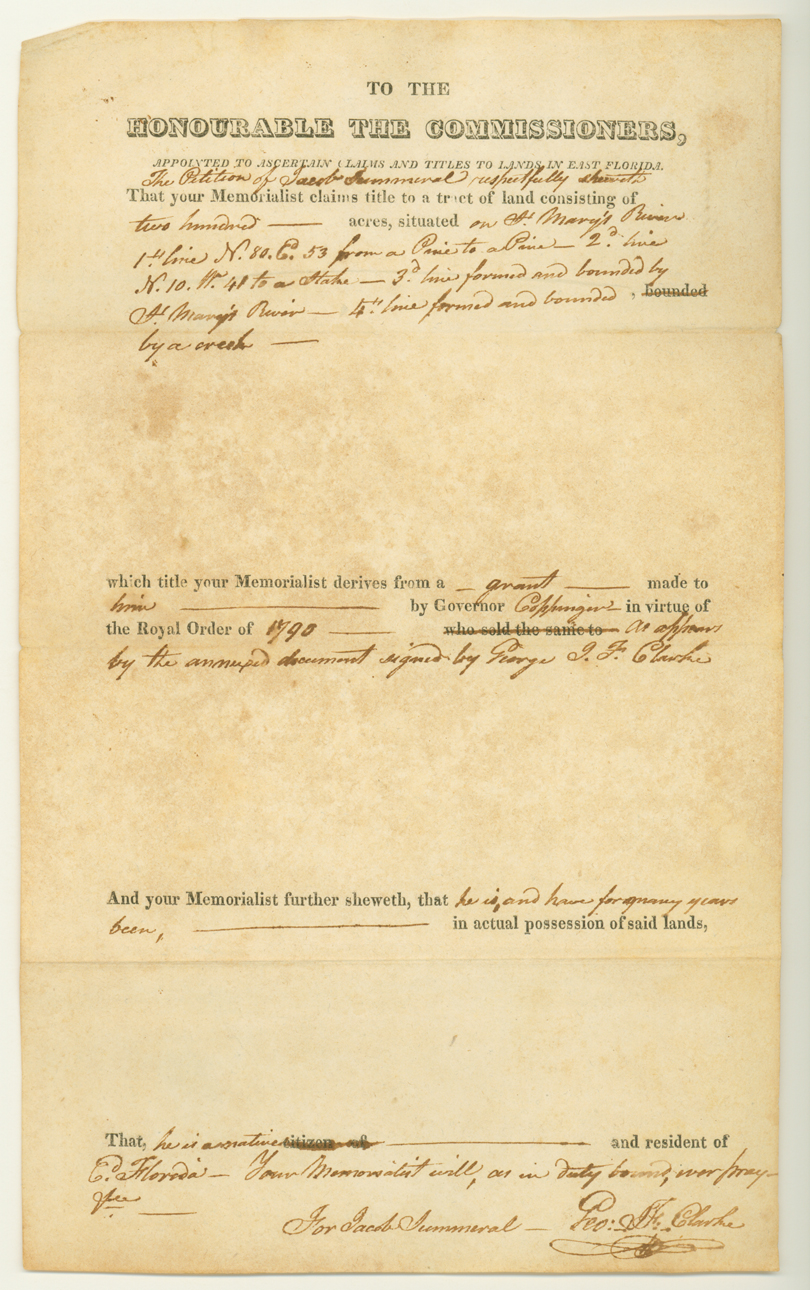 TO THE
HONOURABLE THE COMMISSIONERS,
APPOINTED TO ASCERTAIN CLAIMS AND TITLES TO LANDS IN EAST FLORIDA.
The Petition of Jacob Summeral respectfully sheweth
That your Memorialist claims title to a tract of land consisting of
two hundred — acres, situated on St. Mary's River
1st line N. 80. E. 53 from a Pine to a Pine — 2d. line
N. 10. W. 48 to a Stake — 3d line formed and bounded by
St. Mary's River — 4th line formed and bounded , bounded
by a creek —
which title your Memorialist derives from a — grant — made to
him — by Governor Coppinger in virtue of
the Royal Order of 1790 — who sold the same to — as appears
by the annexed document signed by George J. F. Clarke
And your Memorialist further sheweth, that he is, and have for many years
been, — in actual possession of said lands,
That, he is a native citizen of — and resident of
Et. Florida — Your Memorialist will, as in duty bound, ever pray —
&ce —
For Jacob Summeral — Geo: J. F. Clarke